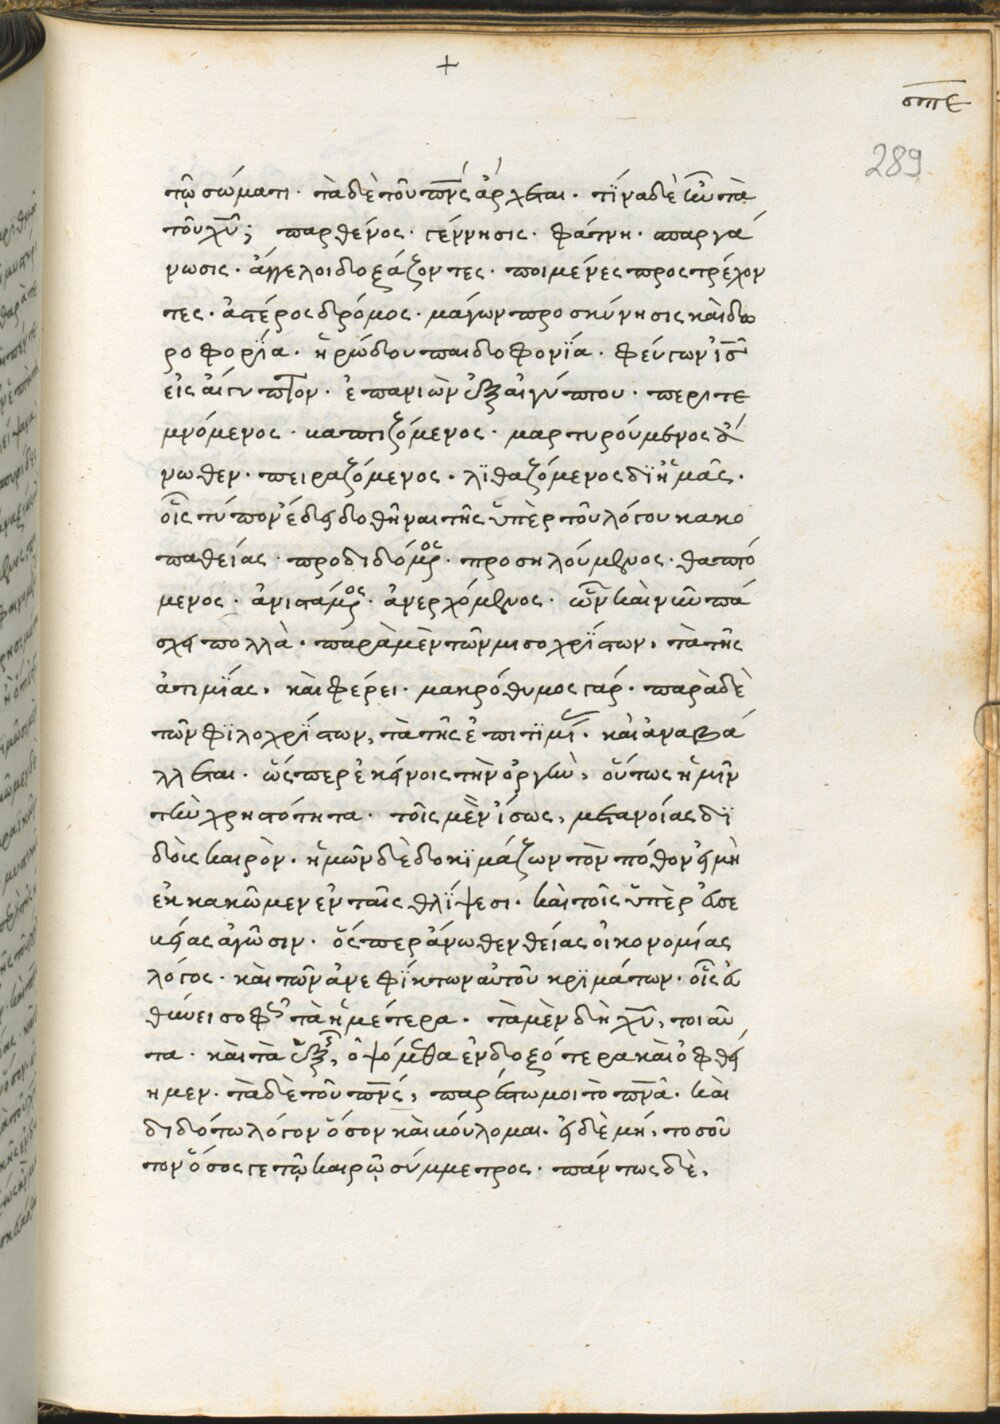 +
σπε
289
τῷ σώματι· τὰ δὲ τοῦ π̅ν̅ς̅ ἄρχεται· τίνα δὲ ἦν τὰ
τοῦ χ̅υ̅; παρθένος· γέννησις· φάτνη· σπαργά
νωσις· ἄγγελοι δοξάζοντες· ποιμένες προστρέχον
τες· ἀστέρος δρόμος· μάγων προσκύνησις καὶ δω
ροφορΐα· ἡρώδου παιδοφονΐα· φεύγων ἰ̅ς̅
εἰς αἴγυπτον· ἐπανιὼν ἐξ αἰγύπτου· περιτε
μνόμενος· βαπτιζόμενος· μαρτυρούμενος ἄ
νωθεν· πειραζόμενος· λϊθαζόμενος δϊ ἡμᾶς·
οἷς τύπον ἔδει δοθῆναι τῆς ὑπὲρ τοῦ λόγου κακο
παθείας· προδιδόμενος· προσηλούμενος· θαπτό
μενος· ἀνιστάμενος· ἀνερχόμενος· ὧν καὶ νῦν πά
σχει πολλὰ· παρὰ μὲν τῶν μισοχρΐστων, τὰ τῆς
ἀτιμΐας, καὶ φέρει· μακρόθυμος γάρ· παρὰ δὲ
τῶν φϊλοχρΐστων, τὰ τῆς ἐπιτϊμί· καὶ ἀναβά
λλεται· ὥσπερ ἐκείνοις τὴν ὀργὴν, οὕτως ἡμῖν
τὴν χρηστότητα· τοῖς μὲν ἴσως, μετανοίας δϊ
δοὺς καιρὸν· ἡμῶν δὲ δοκϊμάζων τὸν πόθον εἰ μὴ
ἐκκακῶμεν ἐν ταῖς θλΐψεσι· καὶ τοῖς ὑπὲρ εὐσε
βείας ἀγῶσιν· ὅσπερ ἄνωθεν θείας οἰκονομίας
λόγος· καὶ τῶν ἀνεφΐκτων αὐτοῦ κρϊμάτων· οἷς εὐ
θύνει σοφῶς τὰ ἡμέτερα· τὰ μὲν δὴ χ̅υ̅, τοιαῦ
τα· καὶ τὰ ἑξῆς, ὀψόμεθα ἐνδοξότερα καὶ ὀφθεί
ημεν· τὰ δὲ τοῦ π̅ν̅ς̅, παρέστω μοι τὸ π̅ν̅α̅· καὶ
διδότω λόγον ὅσον καὶ βούλομαι· εἰ δὲ μή, τοσοῦ
τον ὅσος γε τῷ καιρῷ σύμμετρος· πάντως δὲ,